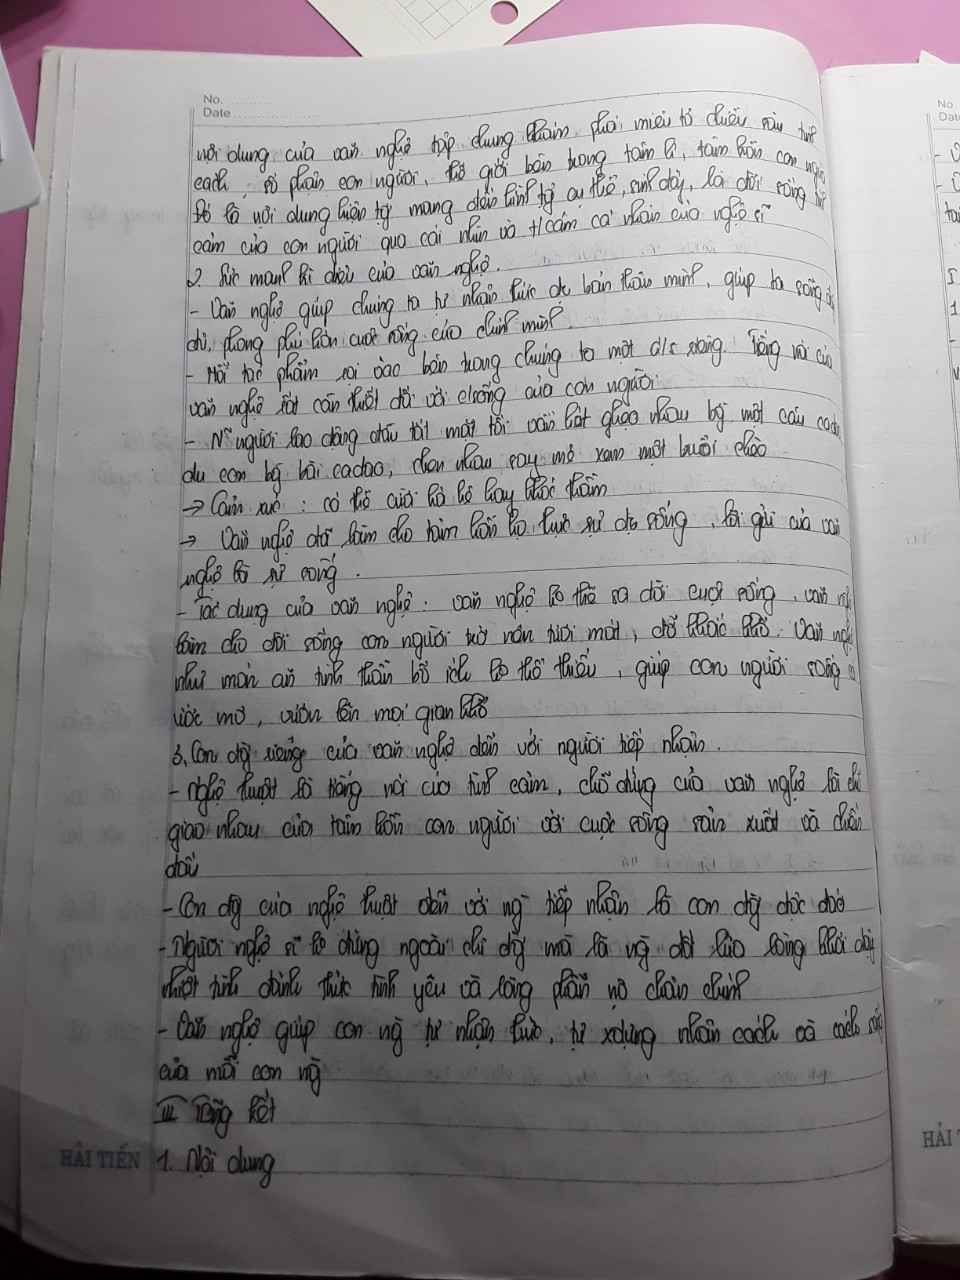 No.
Date
nội dung của văn nghệ tập chung khám phá, miêu tả chiều sâu tính
cách, số phận con người, thế giới bên trong tâm lí, tâm hồn con người
Đó là nội dung hiện tg mang đến hình tg cụ thể, sinh động, là đời sống tình
cảm của con người qua cái nhìn và t/cảm cá nhân của nghệ sĩ
2. Sức mạnh kì diệu của văn nghệ.
- Văn nghệ giúp chúng ta tự nhận thức đc bản thân mình, giúp ta sống đầy
đủ, phong phú hơn cuộc sống của chính mình.
- Mỗi tác phẩm rọi vào bên trong chúng ta một a/s riêng. Tiếng nói của
văn nghệ rất cần thiết đối với c/sống của con người
- N~ người lao động đầu tắt mặt tối vẫn hát ghẹo nhau bg một câu ca dao
du con bg bài cadao, chen nhau say mê xem một buổi chèo
→ Cảm xúc : có thể cười hả hê hay khóc thầm
→ Văn nghệ đã làm cho tâm hồn họ thực sự đc sống, lời gửi của văn
nghệ là sự sống.
- Tác dụng của văn nghệ: văn nghệ ko thể xa dời cuộc sống, văn nghệ
làm cho đời sống con người trở nên tươi mát, đỡ khắc khổ. Văn nghệ
như món ăn tinh thần bổ ích ko thể thiếu, giúp con người sống
ước mơ, vươn lên mọi gian khổ
3, Con đg riêng của văn nghệ đến với người tiếp nhận.
- Nghệ thuật là tiếng nói của tình cảm, chỗ đứng của văn nghệ là chỗ
giao nhau của tâm hồn con người với cuộc sống sản xuất và chiến
đấu
- Con đg của nghệ thuật đến với ng~ tiếp nhận là con đg độc đáo
- Người nghệ sĩ ko đứng ngoài chỉ đg mà là ng đốt lửa lòng khơi dậy
nhiệt tình đánh thức tình yêu và lòng phẫn nộ chân chính
- Văn nghệ giúp con ng tự nhận thức, tự xdựng nhân cách và cách sống
của mỗi con ng
III Tổng kết
1. Nội dung
HẢI TIẾN
No
Date
HẢI T